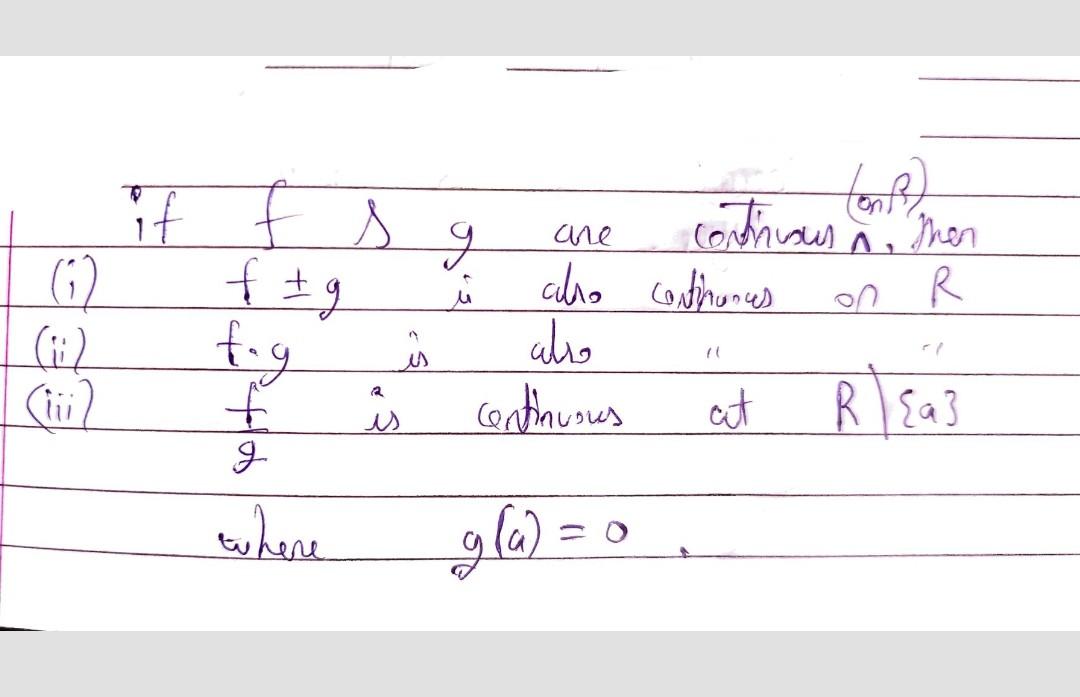 if f & g are continuous (on R), then
(i) f ± g is also continuous on R
(ii) f·g is also " "
(iii) f/g is continuous at R \ {a}
where g(a) = 0.